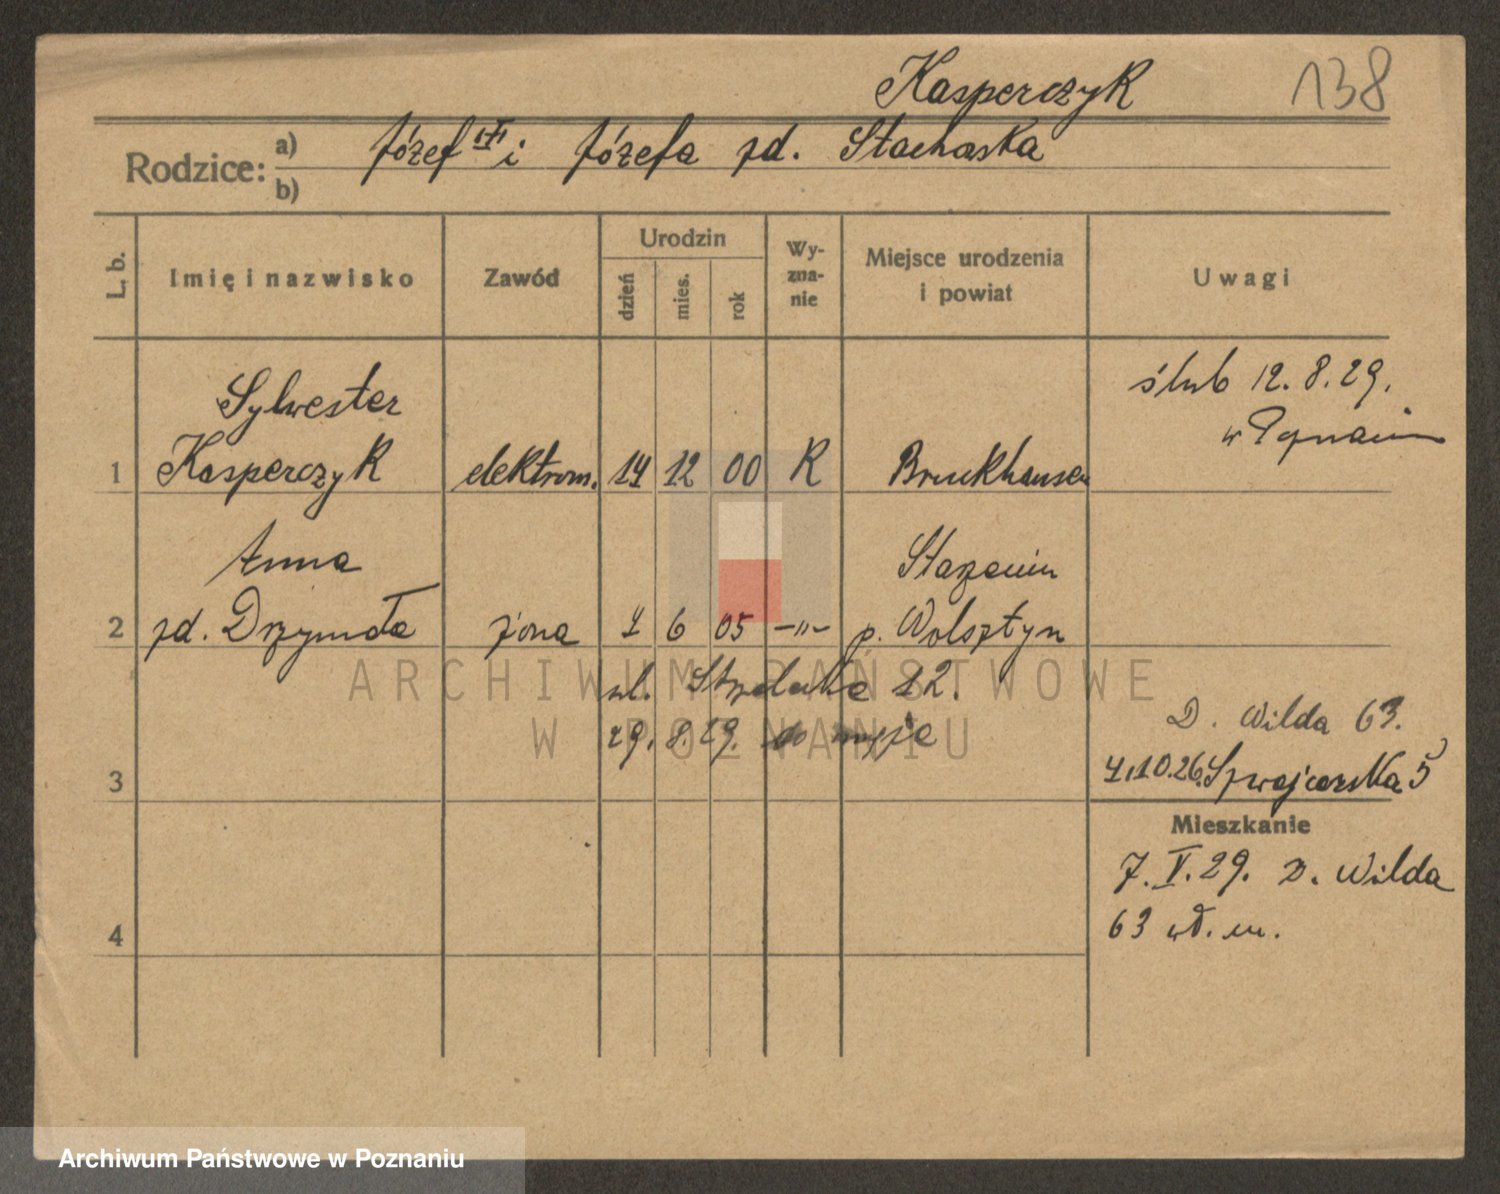 Kasperczyk 138
Rodzice: a) Józef i Józefa zd. Stachorska
b)
L. b. Imię i nazwisko Zawód Urodzin dzień mies. rok Wy-zna-nie Miejsce urodzenia i powiat Uwagi
ślub 12. 8. 29.
w Poznaniu
Sylwester
1 Kasperczyk elektrom. 14 12 00 R Bruckhausen
Anna Starzenin
2 zd. Drzymała żona 1 6 05 -"- p. Wolsztyn
ul. Strzelecka 12.
29. 8. 29.
D. Wilda 63.
3 4.10.26. Szwajcarska 5
Mieszkanie
7. V. 29. D. Wilda
4 63 wł. m.
ARCHIWUM PAŃSTWOWE
W POZNANIU
Archiwum Państwowe w Poznaniu